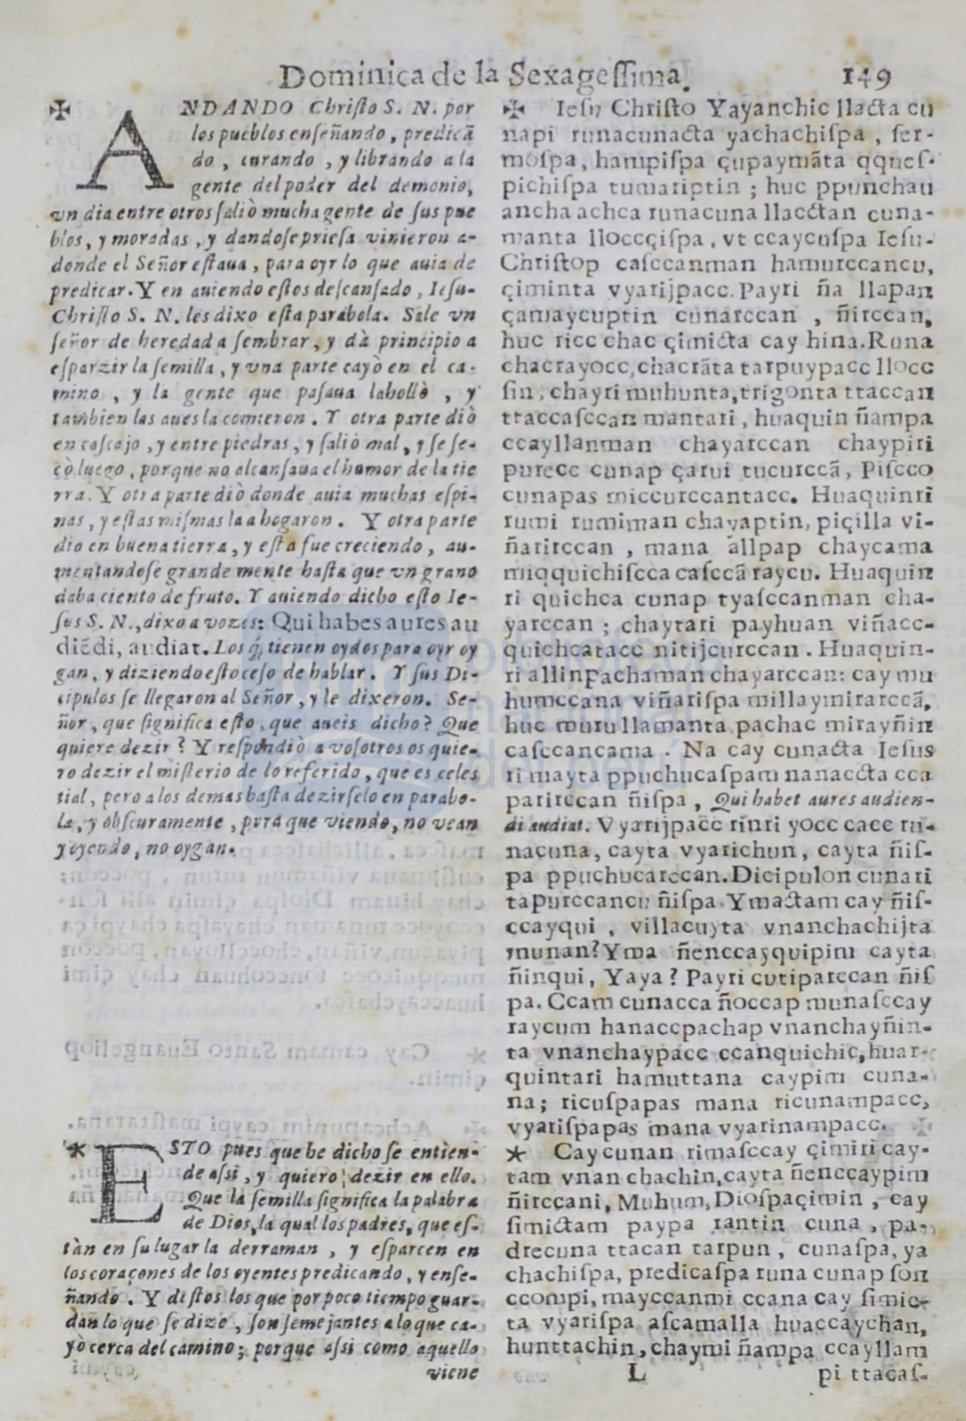 Dominica de la Sexagessima. 149
✠ ANDANDO Christo S. N. por
los pueblos enseñando, predicā
do, curando, y librando a la
gente del poder del demonio,
vn dia entre otros saliò mucha gente de sus pue
blos, y moradas, y dandose priesa vinieron a-
donde el Señor estaua, para oyr lo que auia de
predicar. Y en auiendo estos descansado, Iesu-
Christo S. N. les dixo esta parabola. Sale vn
señor de heredad a sembrar, y dà principio a
esparzir la semilla, y vna parte cayò en el ca-
mino, y la gente que pasaua la hollò, y
tambien las aues la comieron. Y otra parte diò
en cascajo, y entre piedras, y saliò mal, y se se-
cò luego, porque no alcansaua el humor de la tie
rra. Y otra parte diò donde auia muchas espi-
nas, y estas mismas la ahogaron. Y otra parte
dio en buena tierra, y esta fue creciendo, au-
mentandose grande mente hasta que vn grano
daba ciento de fruto. Y auiendo dicho esto Ie-
sus S. N., dixo a vozes: Qui habes aures au
diēdi, audiat. Los q̃, tienen oydos para oyr oy
gan, y diziendo esto ceso de hablar. Y sus Di-
cipulos se llegaron al Señor, y le dixeron. Se-
ñor, que significa esto, que aueis dicho? Que
quiere dezir? Y respondiò a vosotros os quie-
ro dezir el misterio de lo referido, que es celes
tial, pero a los demas basta dezirselo en parabo-
la, y obscuramente, para que viendo, no vean
y oyendo, no oygan.
* ESTO pues que he dicho se entien-
de assi, y quiero dezir en ello.
Que la semilla significa la palabra
de Dios, la qual los padres, que es-
tàn en su lugar la derraman, y esparcen en
los coraçones de los oyentes predicando, y ense-
ñando. Y destos los que por poco tiempo guar-
dan lo que se dize, son semejantes a lo que ca-
yò cerca del camino; porque assi como aquello
viene
✠ Iesu Christo Yayanchic llacta cu
napi runacunacta yachachispa, ser-
mospa, hampispa çupaymāta qques-
pichispa tumariptin; huc ppunchau
ancha achca runacuna llacctan cuna-
manta lloccçispa, vt ccaycuspa Iesu-
Christop casccanman hamurccancu,
çiminta vyarijpacc. Payri ña llapan
çamaycuptin cunarccan, ñirccan,
huc ricc chac çimicta cay hina. Runa
chacrayocc, chacrāta tarpuypacc llocc
sin, chayri muhunta, trigonta ttaccan
ttaccasccan mantari, huaquin ñampa
ccayllanman chayarccan chaypiri
purecc cunap çarui tucurccā, Piscco
cunapas miccurccantacc. Huaquinri
rumi rumiman chayaptin, piçilla vi-
ñarirccan, mana allpap chaycama
miqquichiscca casccā raycu. Huaquin
ri quichca cunap tyasccanman cha-
yarccan; chaytari payhuan viñacc-
quichcatacc nitijcurccan. Huaquin-
ri allinpachaman chayarccan: cay mu
humccana viñarispa millaymirarccā,
huc muru llamanta pachac mirayñin
casccancama. Na cay cunacta Iesus
ri mayta ppuchucaspam nanaccta cca
parirccan ñispa, Qui habet aures audien-
di audiat. Vyarijpacc rinri yocc cacc ru-
nacuna, cayta vyarichun, cayta ñis-
pa ppuchucarccan. Dicipulon cunari
tapurccancu ñispa. Ymactam cay ñis-
ccayqui, villacuyta vnanchachijta
munan? Yma ñenccayquipim cayta
ñinqui, Yaya? Payri cutiparccan ñis
pa. Ccam cunacca ñoccap munasccay
raycum hanaccpachap vnanchayñin-
ta vnanchaypacc ccanquichic, huar-
quintari hamuttana caypim cuna-
na; ricuspapas mana ricunampacc,
vyarispapas mana vyarinampacc.
* Cay cunan rimasccay çimiri cay-
tam vnan chachin, cayta ñenccaypim
ñirccani, Muhum, Diospaçimin, cay
simictam paypa rantin cuna, pa-
drecuna ttacan tarpun, cunaspa, ya
chachispa, predicaspa runa cunap son
ccompi, mayccanmi ccana cay simic-
ta vyarispa ascamalla huaccaychan,
hunttachin, chaymi ñampa ccayllam
L pi ttacas-